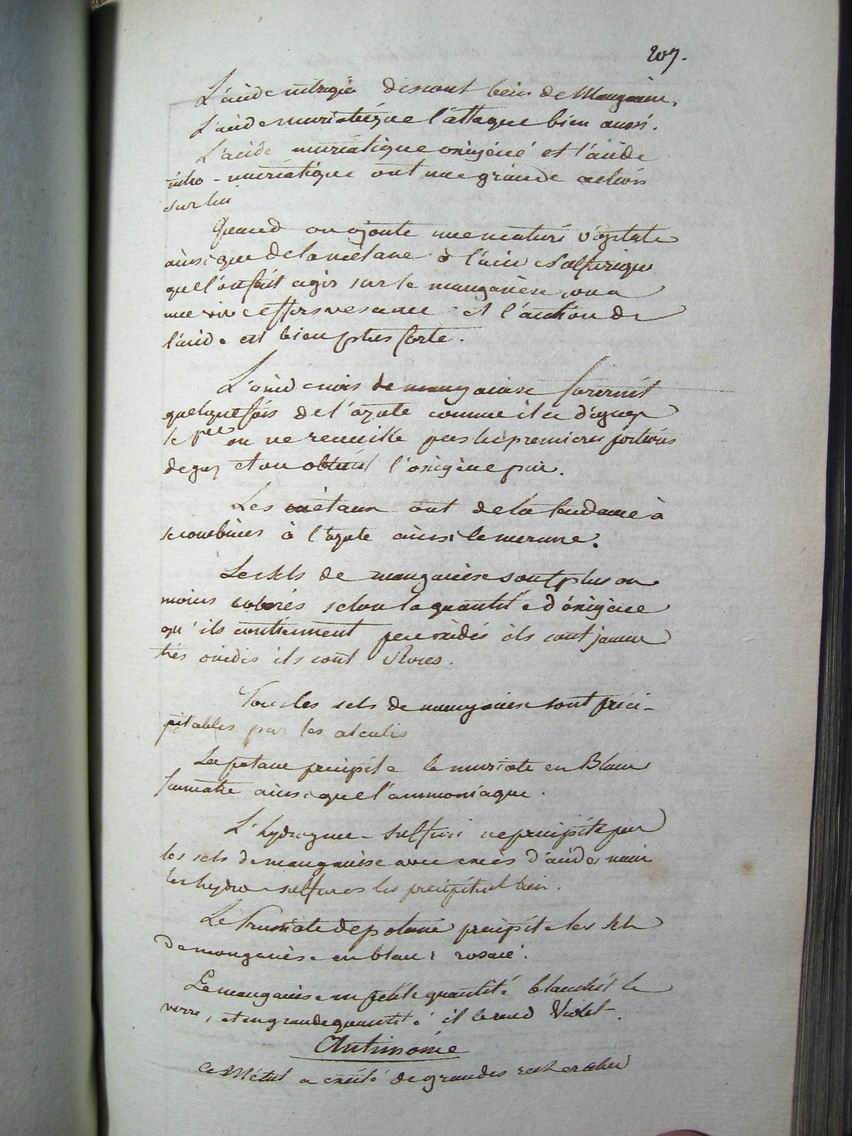 207.
L'acide nitrique dissout bien de Manganèse.
L'acide muriatique l'attaque bien aussi.
L'acide muriatique oxigéné et l'acide
nitro-muriatique ont une grande action
sur lui
Quand on ajoute une matière végétale
ainsi que de la mélasse à l'acide sulfurique
que l'on fait agir sur le manganèse, on a
une vive effervescence et l'action de
l'acide est bien plus forte.
L'oxide noir de manganèse fournit
quelquefois de l'azote comme il se dégage
le 1er on ne recueille pas les premières portions
de gaz et on obtient l'oxigène pur.
Les métaux ont de la tendance à
se combiner à l'azote ainsi le mercure.
Les sels de manganèse sont plus ou
moins colorés selon la quantité d'oxigène
qu'ils contiennent peu oxidés ils sont jaunes
très oxidés ils sont roses.
Tous les sels de manganèse sont préci-
pitables par les alcalis
La potasse précipite le muriate en Blanc
ainsi que l'ammoniaque.
L'hydrogène-sulfuré ne précipite pas
les sels de manganèse avec excès d'acide mais
les hydro-sulfures les précipitent bien.
Le Prussiate de potasse précipite les sels
de manganèse en blanc rosacé.
Le manganèse en petite quantité blanchit le
verre, et en grande quantité il le rend Violet.
Antimoine
Ce Métal a excité de grandes recherches